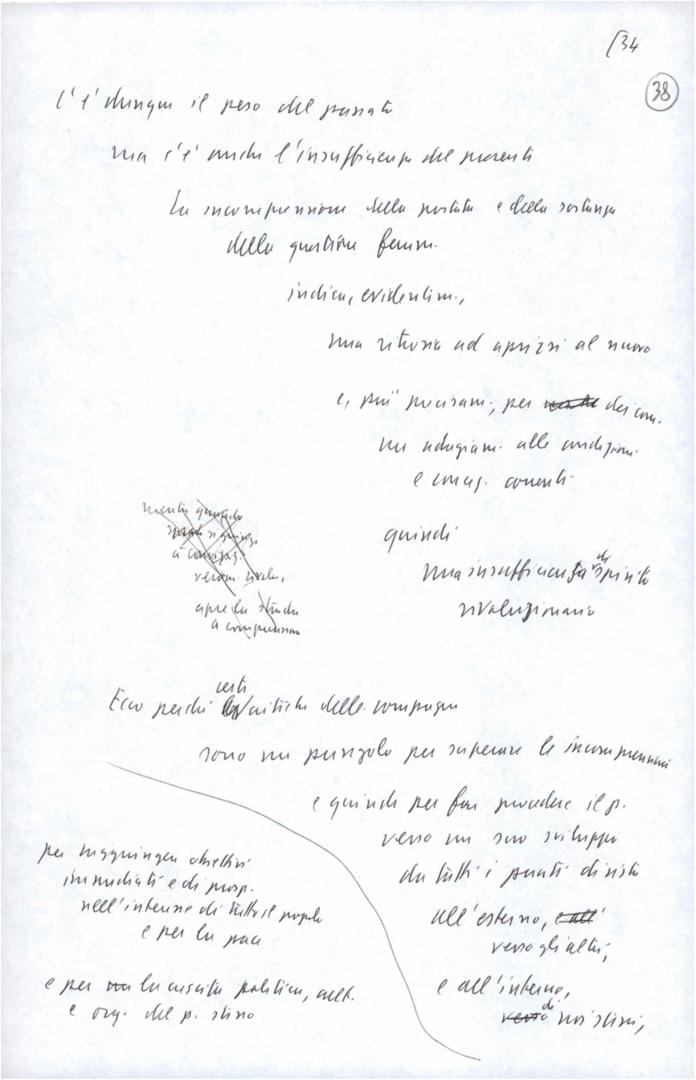 /34
38
C'è dunque il peso del passato
ma c'è anche l'insufficienza del presente
La incomprensione della portata e della sostanza
della questione femm.
indica, evidentem.,
una ritrosia ad aprirsi al nuovo
e, più precisam., per dei com.
un adagiam. alle condizioni
e correnti
quindi
una insufficienza di spirito
rivoluzionario
apre la strada
a comprension
Ecco perché certe critiche delle compagne
sono un pungolo per superare le incomprensioni
e quindi per far procedere il p.
verso un suo sviluppo
da tutti i punti di vista
all'esterno, e all'
verso gli altri,
e all'interno,
verso di noi stessi,
per raggiungere obiettivi
immediati e di prosp.
nell'interesse di tutto il popolo
e per la pace
e per la crescita politica, cult.
e org. del p. stesso